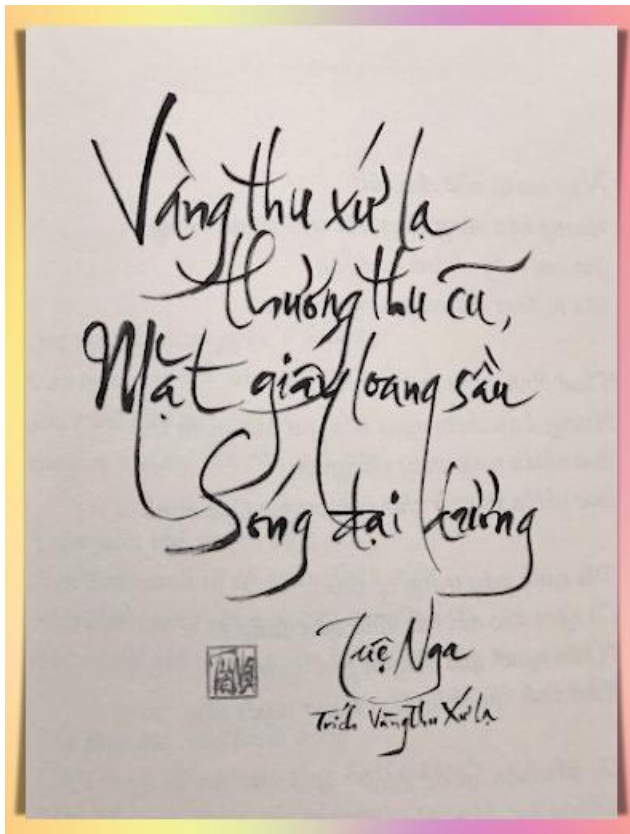 Vàng thu xứ lạ
thương thu cũ,
Mặt giấy loang sầu
Sóng đại dương
Tuệ Nga
Trích Vàng Thu Xứ Lạ